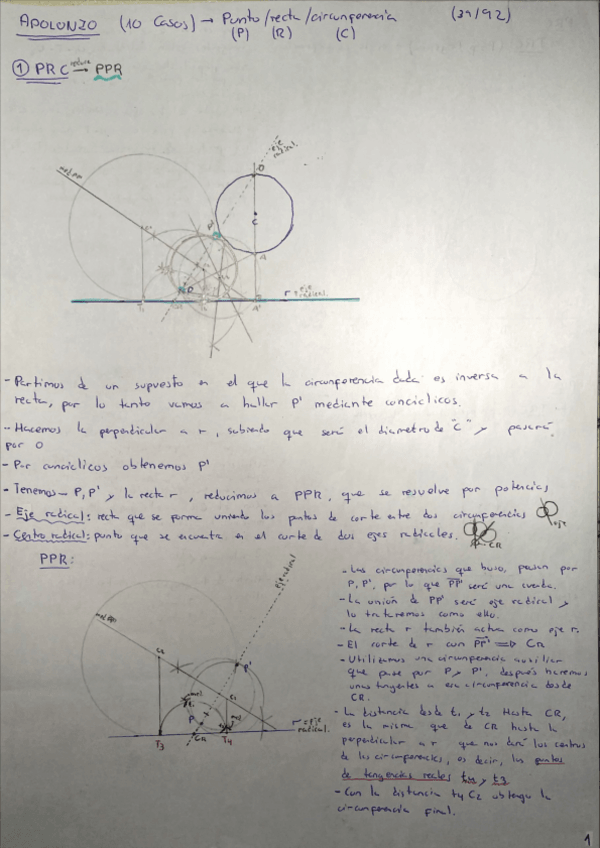 APOLONIO (10 Casos) → Punto/recta/circunferencia (39/92)
(P) (R) (C)
① PRC reduce→ PPR
eje radical
med PP'
O
C
P'
A
P
T1
A'
r = eje radical
- Partimos de un supuesto en el que la circunferencia dada es inversa a la
recta, por lo tanto vamos a hallar P' mediante concíclicos.
- Hacemos la perpendicular a r, sabiendo que será el diametro de "C" y pasará
por O
- Por concíclicos obtenemos P'
- Tenemos → P, P' y la recta r, reducimos a PPR, que se resuelve por potencias
- Eje radical: recta que se forma uniendo los puntos de corte entre dos circunferencias eje
- Centro radical: punto que se encuentra en el corte de dos ejes radicales. CR
PPR:
eje radical
med PP'
C2
P'
C1
t1
P
t2
CR
T3
T4
r = eje radical.
- Las circunferencias que busco, pasan por
P, P', por lo que PP' será una cuerda.
- La unión de PP' será eje radical y
lo trataremos como ello.
- La recta r también actua como eje r.
- El corte de r con PP' ⇒ CR
- Utilizamos una circunferencia auxiliar
que pase por P y P', después haremos
unas tangentes a esa circunferencia desde
CR.
- La distancia desde t1 y t2 hasta CR,
es la misma que de CR hasta la
perpendicular a r que nos dará los centros
de las circunferencias, es decir, los puntos
de tangencias reales t4 y t3
- Con la distancia t4 C2 obtengo la
circunferencia final.
1